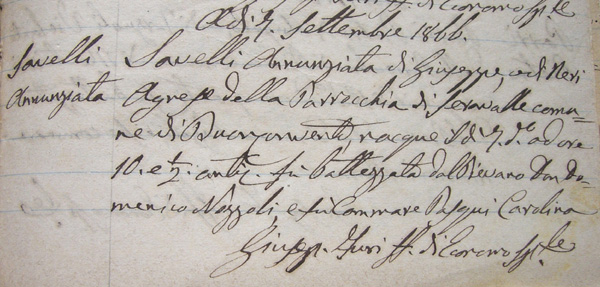 Giusp. Turi ff. di Economo Sp.le
A dì 7. Settembre 1866.
Savelli
Annunziata
Savelli Annunziata di Giuseppe, e di Neri
Agnese della Parrocchia di Seravalle comu=
ne di Buonconventi, nacque il dì 7. do ad ore
10. e ½. antiz. fù Battezzata dal Pievano Don Do=
menico Nozzoli, e fù Commare Pasqui Carolina
Giusp. Turi ff. di Economo Sp.le